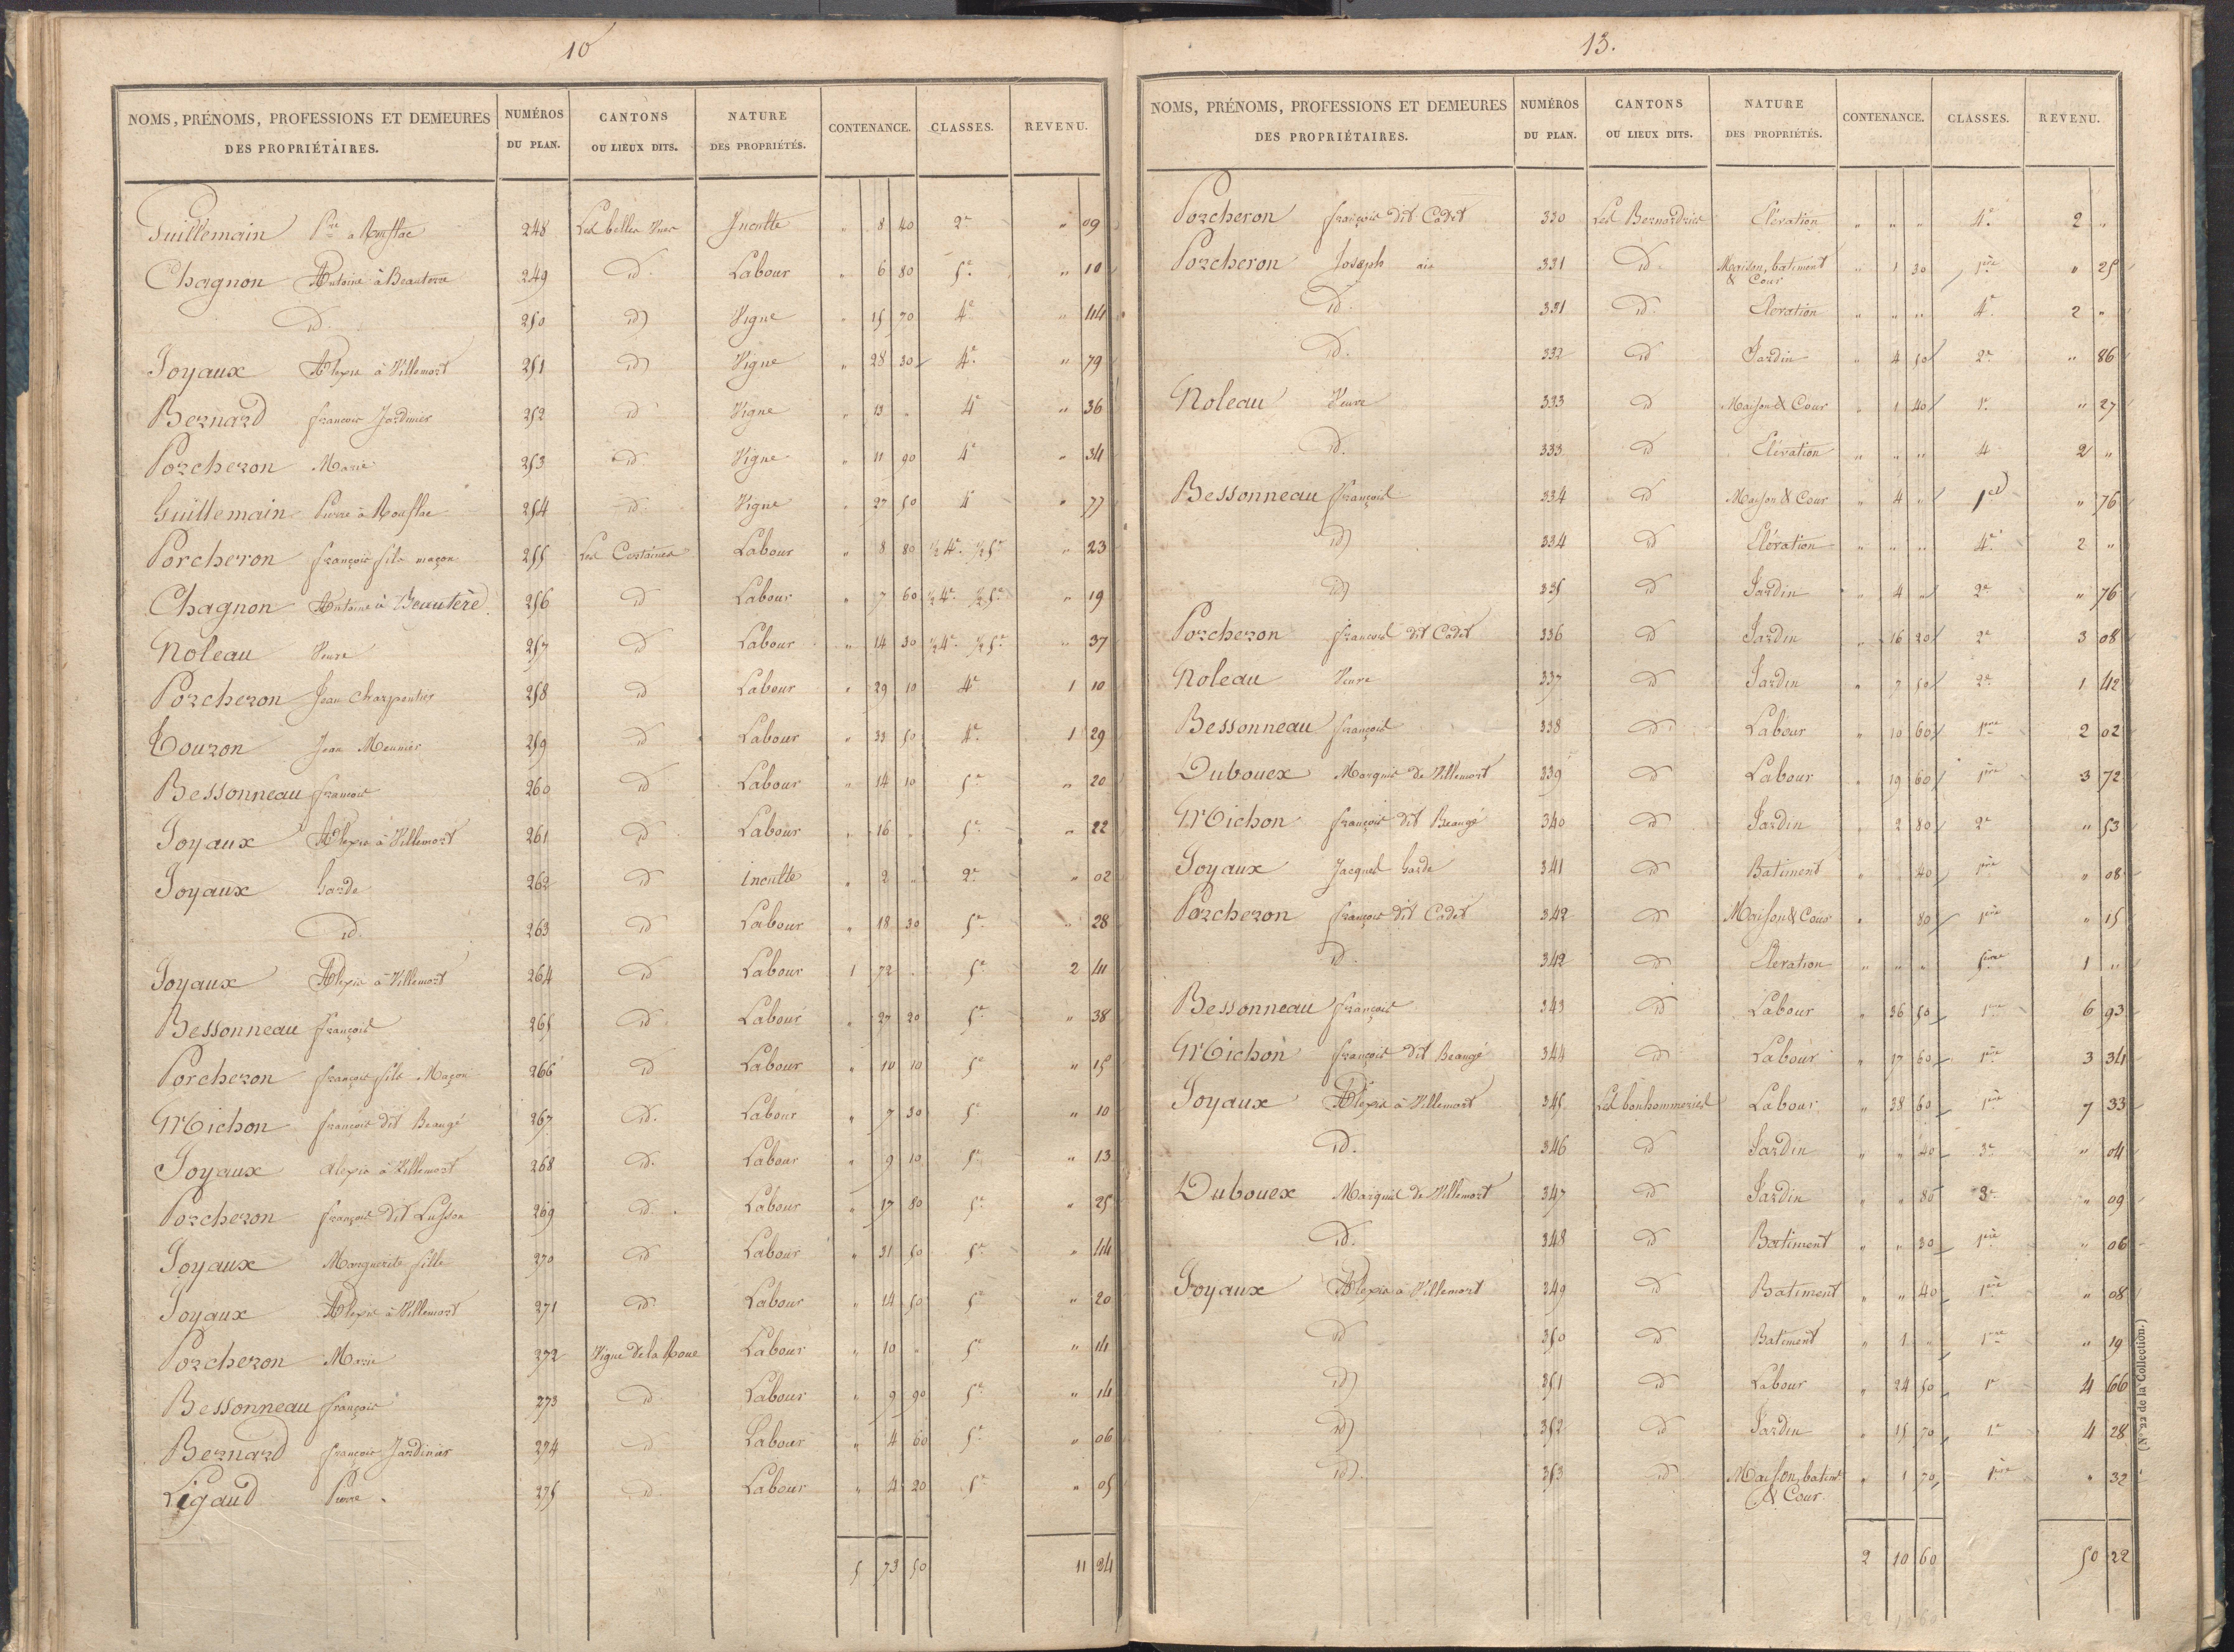 10
NOMS, PRÉNOMS, PROFESSIONS ET DEMEURES DES PROPRIÉTAIRES. NUMÉROS DU PLAN. CANTONS OU LIEUX DITS. NATURE DES PROPRIÉTÉS. CONTENANCE. CLASSES. REVENU.
Guillemain Pre a Rouflac 248 Les belles Vues Inculte " 8 40 2e " 09
Chagnon Antoine à Beauterre 249 id. Labour " 6 80 5e " 10
id. 250 id Vigne " 15 70 4e " 44
Joyaux Alexis à Villemort 251 id Vigne " 28 30 4e " 79
Bernard françois Jardinier 252 id Vigne " 13 " 4e " 36
Porcheron Marie 253 id Vigne " 11 90 4e " 34
Guillemain Pierre à Rouflac 254 id Vigne " 27 50 4e " 77
Porcheron françois fils maçon 255 Les Certaines Labour " 8 80 ½ 4e ½ 5e " 23
Chagnon Antoine à Beautere 256 id Labour " 7 60 ½ 4e ½ 5e " 19
Noleau Veuve 257 id Labour " 14 30 ½ 4e ½ 5e " 37
Porcheron Jean Charpentier 258 id Labour " 29 10 4e 1 10
Touron Jean Meunier 259 id Labour " 33 50 4e 1 29
Bessonneau françois 260 id Labour " 14 10 5e " 20
Joyaux Alexis à Villemort 261 id Labour " 16 " 5e " 22
Joyaux Garde 262 id inculte " 2 " 2e " 02
id. 263 id Labour " 18 30 5e " 28
Joyaux Alexis à Villemort 264 id Labour 1 72 " 5e 2 41
Bessonneau françois 265 id Labour " 27 20 5e " 38
Porcheron françois fils Maçon 266 id Labour " 10 10 5e " 15
Michon françois dit Beaugé 267 id. Labour " 7 30 5e " 10
Joyaux alexis à Villemort 268 id. Labour " 9 10 5e " 13
Porcheron françois dit Lusson 269 id. Labour " 17 80 5e " 25
Joyaux Marguerite fille 270 id Labour " 31 50 5e " 44
Joyaux Alexis à Villemort 271 id Labour " 14 50 5e " 20
Porcheron Marie 272 Vigne de la Roue Labour " 10 " 5e " 14
Bessonneau françois 273 id Labour " 9 90 5e " 14
Bernard françois Jardinier 274 id Labour " 4 60 5e " 06
Ligaud Pierre. 275 id. Labour " 4 20 5e " 05
5 73 50 11 84
13.
NOMS, PRÉNOMS, PROFESSIONS ET DEMEURES DES PROPRIÉTAIRES. NUMÉROS DU PLAN. CANTONS OU LIEUX DITS. NATURE DES PROPRIÉTÉS. CONTENANCE. CLASSES. REVENU.
Porcheron françois dit Cadet 330 Les Bernardries Elévation " " " 4e 2 "
Porcheron Joseph ainé 331 id. Maison, batiment & Cour " 1 30 1ère " 25
id. 331 id. Elevation " " " 4e 2 "
id. 332 id Jardin " 4 50 2e " 86
Noleau Veuve 333 id Maison & Cour " 1 40 1e " 27
id. 333 id Elévation " " " 4 2 "
Bessonneau françois 334 id Maison & Cour " 4 " 1re " 76
id 334 id Elévation " " " 4e 2 "
id 335 id Jardin " 4 " 2e " 76
Porcheron françois dit Cadet 336 id Jardin " 16 20 2e 3 08
Noleau Veuve 337 id Jardin " 7 50 2e 1 42
Bessonneau françois 338 id Labour " 10 60 1ere 2 02
Dubouex Marquis de Villemort 339 id Labour " 19 60 1ère 3 72
Michon françois dit Beaugé 340 id Jardin " 2 80 2e " 53
Joyaux Jacques Garde 341 id Batiment " " 40 1ère " 08
Porcheron françois dit Cadet 342 id Maison & Cour " " 80 1ère " 15
id. 342 id Elevation " " " 5eme 1 "
Bessonneau françois 343 id Labour " 36 50 1ere 6 93
Michon françois dit Beaugé 344 id Labour " 17 60 1ère 3 34
Joyaux Alexis à Villemort 345 Les bonhommeries Labour " 38 60 1ère 7 33
id. 346 id Jardin " " 20 3e " 04
Dubouex Marquis de Villemort 347 id Jardin " " 80 3e " 09
id. 348 id Batiment " " 30 1ère " 06
Joyaux Alexis à Villemort 349 id Batiment " " 40 1ère " 08
id 350 id Batiment " 1 " 1ere " 19
id 351 id Labour " 24 50 1e 4 66
id 352 id Jardin " 15 70 1e 4 28
id. 353 id Maison, batimt & Cour. " 1 70 1ère " 32
2 10 60 50 22
(N° 22 de la Collection.)